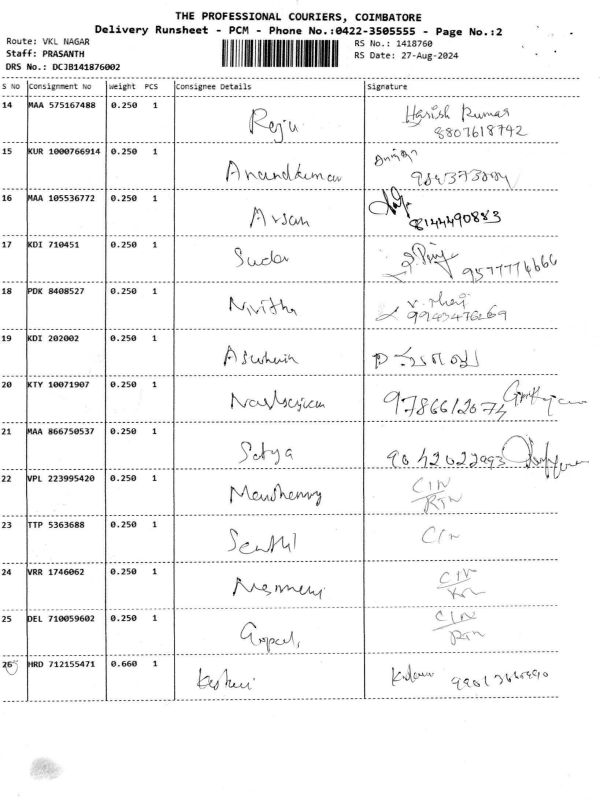 THE PROFESSIONAL COURIERS, COIMBATORE
Delivery Runsheet - PCM - Phone No.:0422-3505555 - Page No.:2
Route: VKL NAGAR
RS No.: 1418760
Staff: PRASANTH
RS Date: 27-Aug-2024
DRS No.: DCJB141876002
S No Consignment No Weight PCS Consignee Details Signature
14 MAA 575167488 0.250 1 Raju Harish Kumar
8807618742
15 KUR 1000766914 0.250 1 Anandkumar
16 MAA 105536772 0.250 1 Arsan
8144490883
17 KDI 710451 0.250 1 Sudar
9577774666
18 PDK 8408527 0.250 1 Nivitha
19 KDI 202002 0.250 1
20 KTY 10071907 0.250 1
21 MAA 866750537 0.250 1 Satya
22 VPL 223995420 0.250 1 C/N
RTN
23 TTP 5363688 0.250 1 Senthil C/N
24 VRR 1746062 0.250 1 C/N
RTN
25 DEL 710059602 0.250 1 Gopal, C/N
RTN
26 HRD 712155471 0.660 1